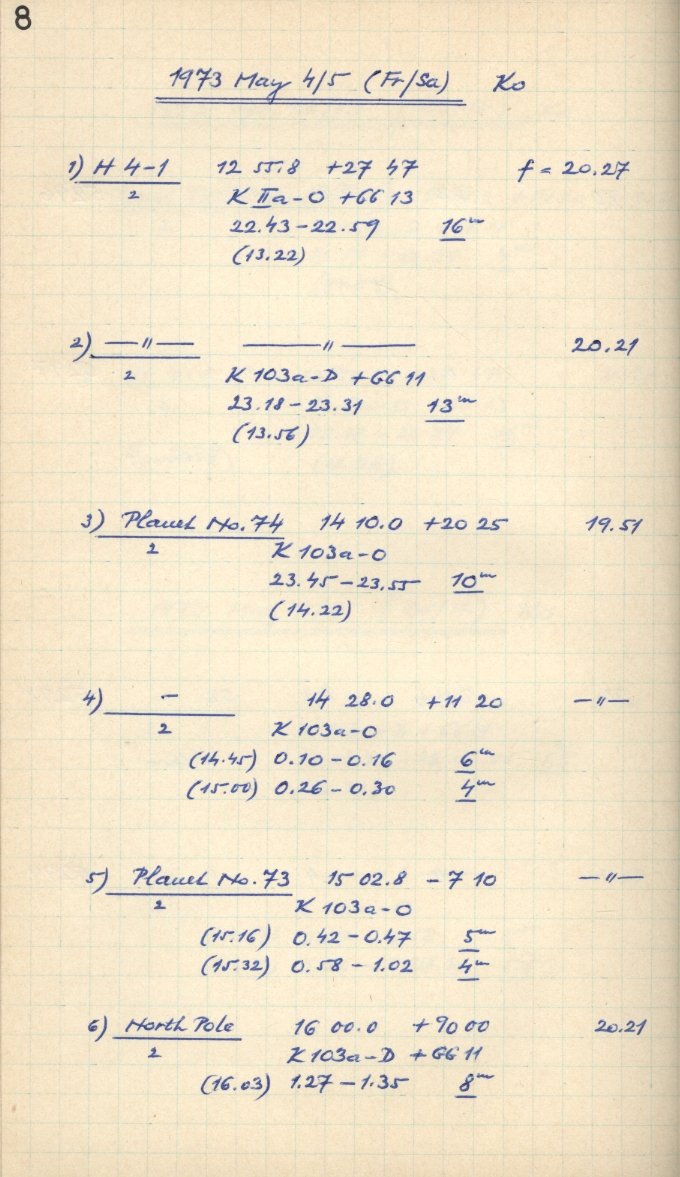 8
1973 May 4/5 (Fr/Sa) Ko
1) H 4-1 12 55.8 +27 47 f = 20.27
2 K IIa-O +GG 13
22.43-22.59 16m
(13.22)
2) —〃— —〃— 20.21
2 K 103a-D +GG 11
23.18-23.31 13m
(13.56)
3) Planet No. 74 14 10.0 +20 25 19.51
2 K 103a-O
23.45-23.55 10m
(14.22)
4) — 14 28.0 +11 20 —〃—
2 K 103a-O
(14.45) 0.10-0.16 6m
(15.00) 0.26-0.30 4m
5) Planet No. 73 15 02.8 -7 10 —〃—
2 K 103a-O
(15.16) 0.42-0.47 5m
(15.32) 0.58-1.02 4m
6) North Pole 16 00.0 +90 00 20.21
2 K 103a-D +GG 11
(16.03) 1.27-1.35 8m